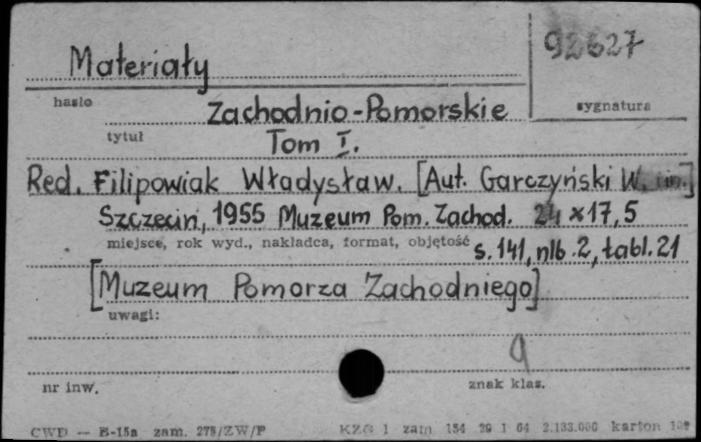 92627
Materiały
hasło
sygnatura
Zachodnio-Pomorskie
tytuł
Tom I.
Red. Filipowiak Władysław. [Aut. Garczyński W. i in.]
Szczecin, 1955 Muzeum Pom. Zachod. 24 x 17,5
miejsce, rok wyd., nakładca, format, objętość
s. 141, nlb. 2, tabl. 21
[Muzeum Pomorza Zachodniego]
uwagi:
nr inw.
znak klas.
CWD — B-15a zam. 278/ZW/P KZG 1 zam 154 29 1 64 2.133.000 karton